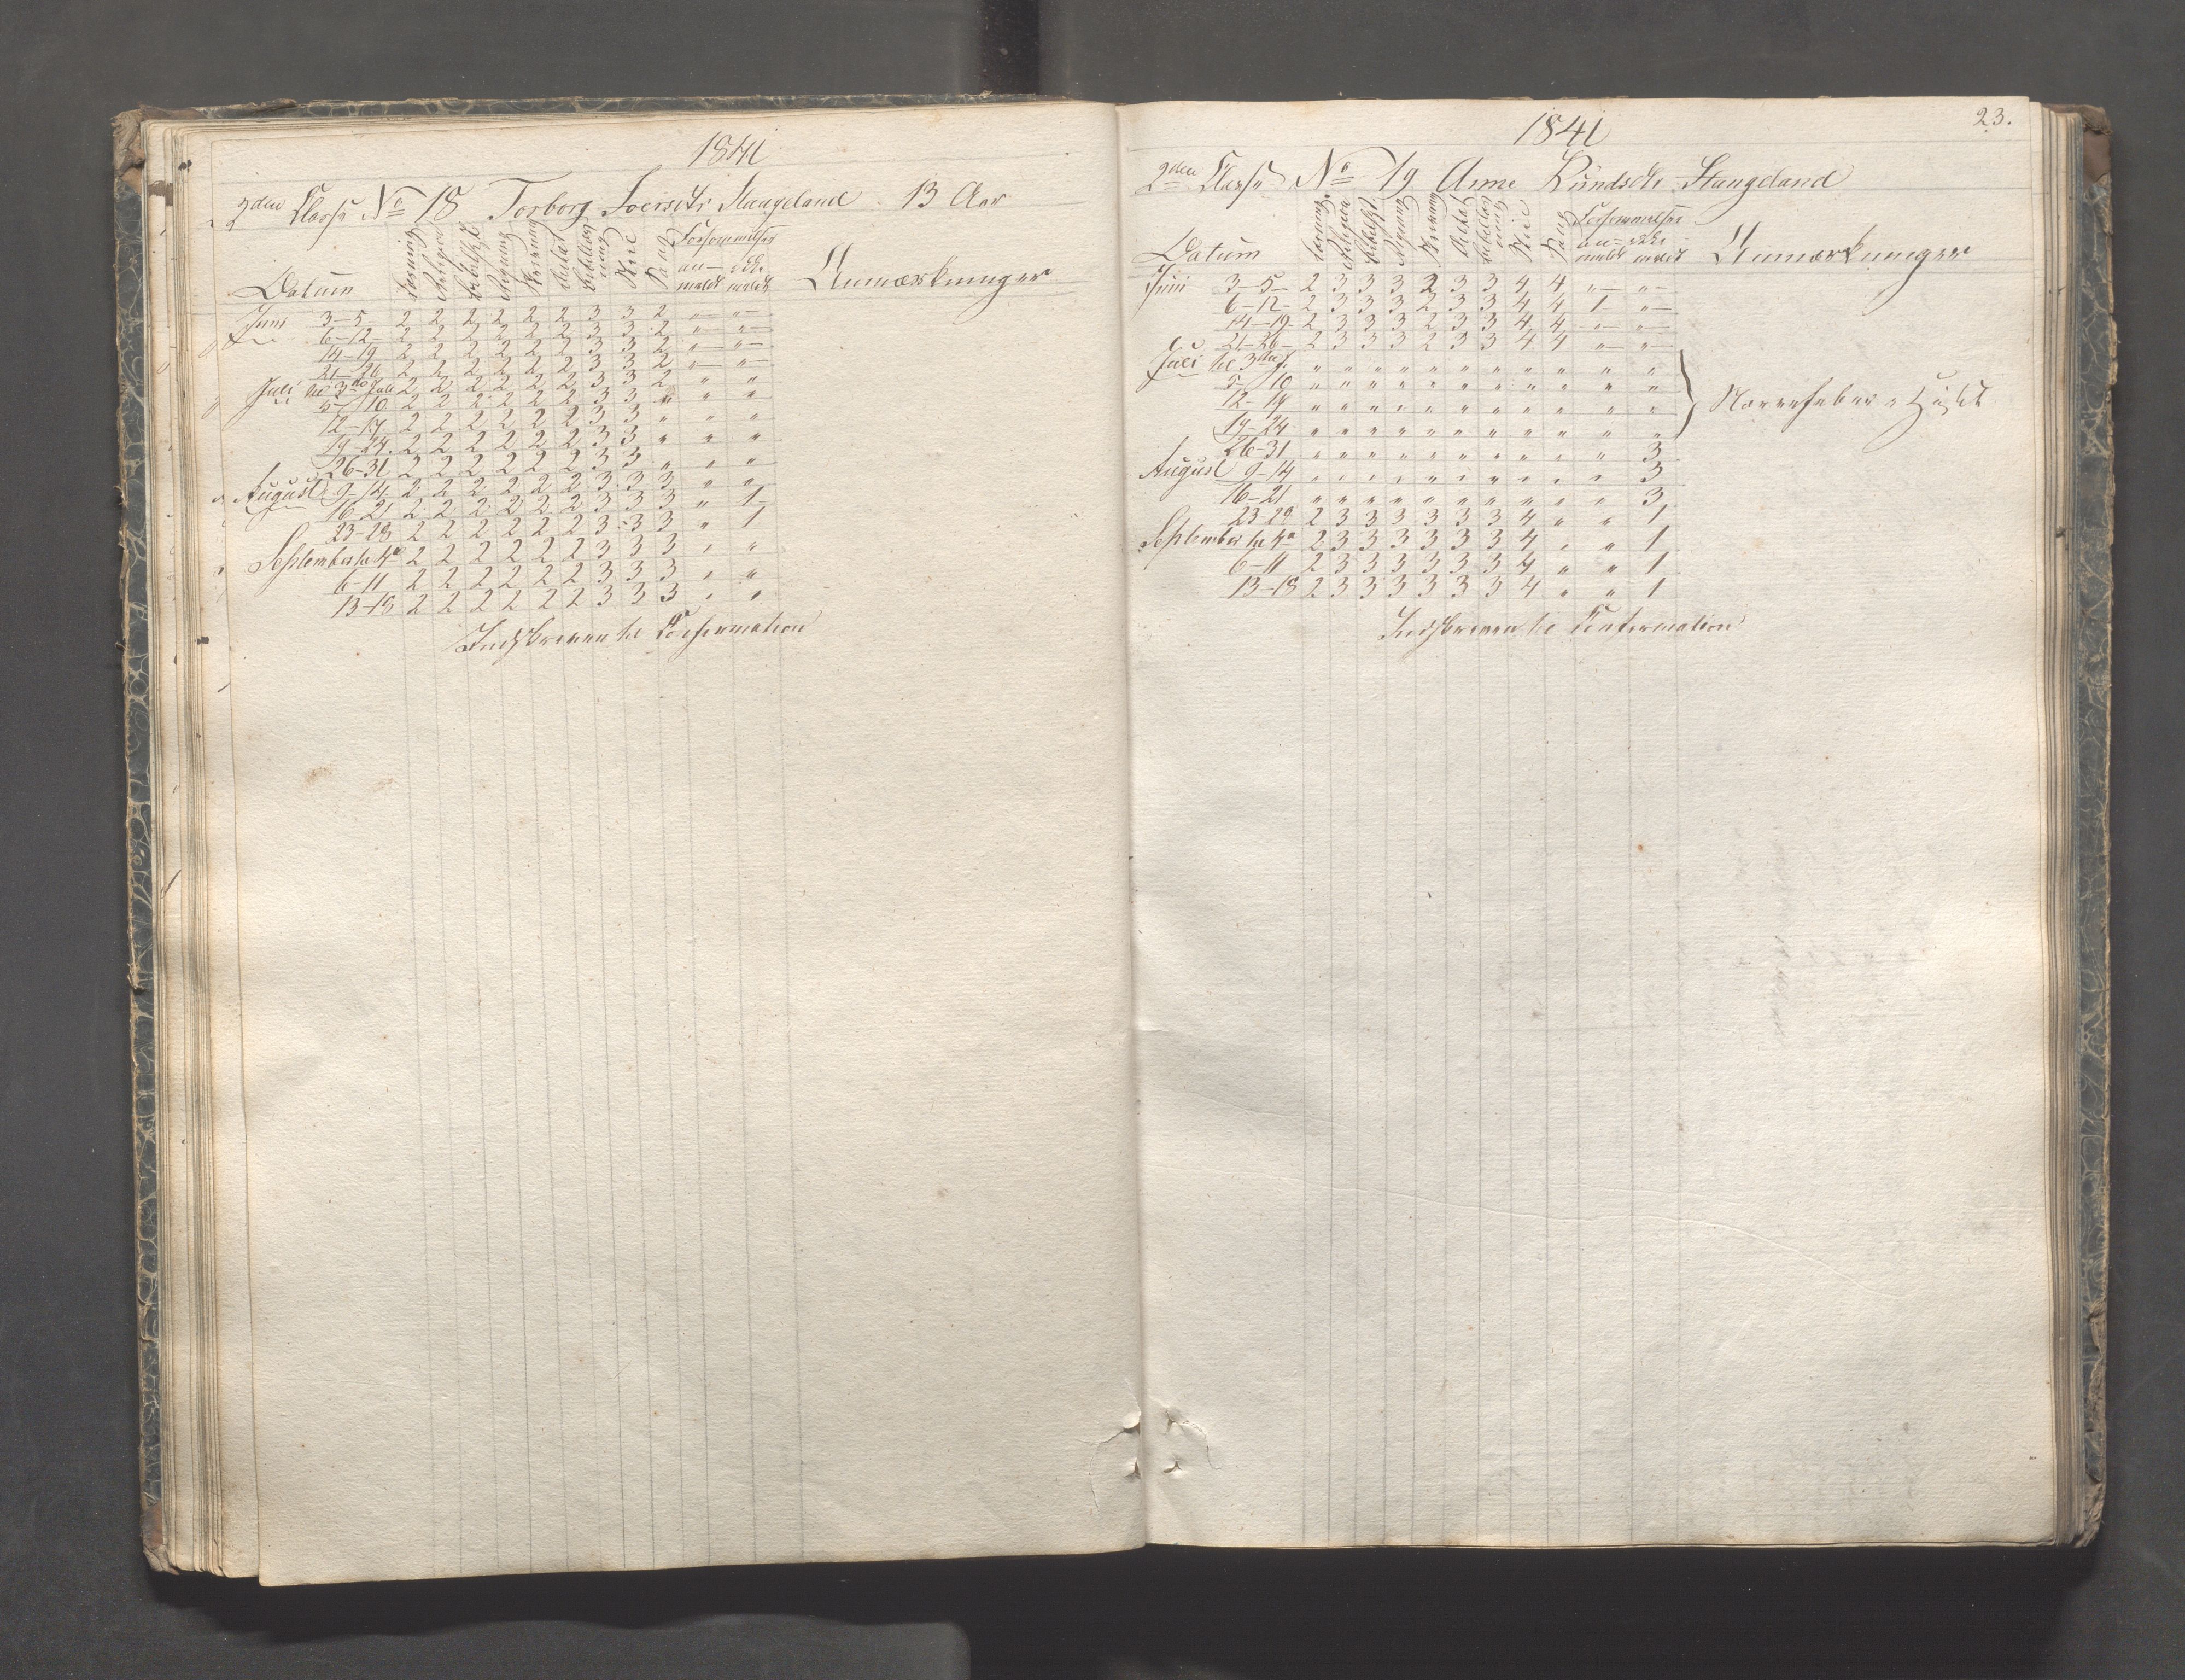 1841
2den Classe No 18 Torborg Stangeland 13 Aar
Datum Læsning Religion Regning Skrivning Flid Sang Forsømmelser an- meldt ikke meldt Anmærkninger
Juni 3-5 2 2 2 2 2 2 3 3 2 " "
6-12 2 2 2 2 2 2 3 3 2 " "
14-19 2 2 2 2 2 2 3 3 2 " "
21-26 2 2 2 2 2 2 3 3 2 " "
Juli til 3die Juli 2 2 2 2 2 2 3 3 2 " "
5-10 2 2 2 2 2 2 3 3 " " "
12-17 2 2 2 2 2 2 3 3 " " "
19-24 2 2 2 2 2 2 3 3 " " "
26-31 2 2 2 2 2 2 3 3 " " "
August 9-14 2 2 2 2 2 2 3 3 3 " "
16-21 2 2 2 2 2 2 3 3 3 " 1
23-28 2 2 2 2 2 2 3 3 3 " 1
September til 4de 2 2 2 2 2 2 3 3 3 " "
6-11 2 2 2 2 2 2 3 3 3 " "
13-18 2 2 2 2 2 2 3 3 3 " "
Indskreven til Confirmation
23.
1841
2den Classe No 19 Anne Stangeland
Datum Læsning Religion Regning Skrivning Flid Sang Forsømmelser an- meldt ikke meldt Anmærkninger
Juni 3-5 2 3 3 3 2 3 3 4 4 " "
6-12 2 3 3 3 2 3 3 4 4 1 "
14-19 2 3 3 3 2 3 3 4 4 " "
21-26 2 3 3 3 2 3 3 4 4 " "
Juli til 3die J. " " " " " " " " " " "
5-10 " " " " " " " " " " "
12-17 " " " " " " " " " " "
19-24 " " " " " " " " " " "
26-31 " " " " " " " " " " 3
August 9-14 " " " " " " " " " " 3
16-21 " " " " " " " " " " 3
23-28 2 3 3 3 3 3 3 4 " " 1
September til 4de 2 3 3 3 3 3 3 4 " " 1
6-11 2 3 3 3 3 3 3 4 " " 1
13-18 2 3 3 3 3 3 3 4 " " 1
Indskreven til Confirmation